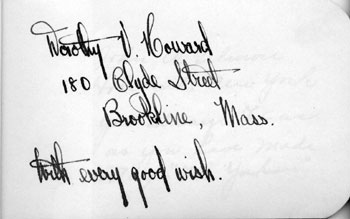 Dorothy V. Howard
180 Clyde Street
Brookline, Mass.
With every good wish.